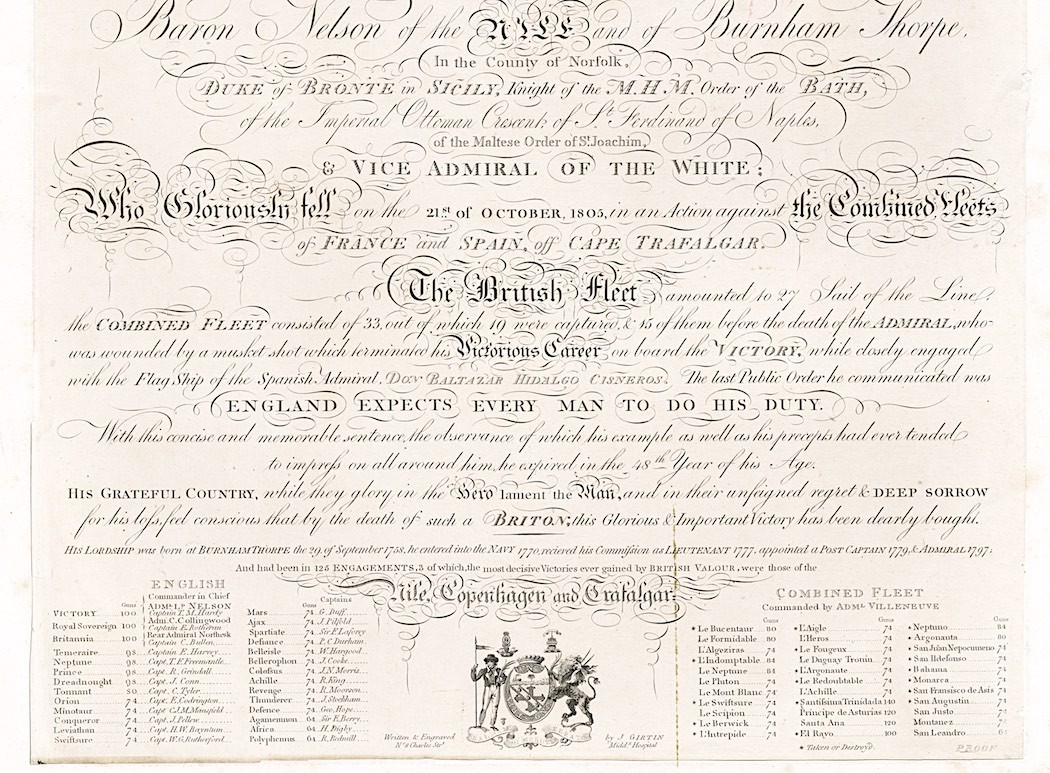 Baron Nelson of the NILE and of Burnham Thorpe,
In the County of Norfolk,
DUKE of BRONTE in SICILY, Knight of the M.H.M. Order of the BATH,
of the Imperial Ottoman Crescent, of St. Ferdinand of Naples,
of the Maltese Order of St. Joachim,
& VICE ADMIRAL OF THE WHITE;
Who Gloriously fell on the 21st of OCTOBER, 1805, in an Action against the Combined Fleets
of FRANCE and SPAIN, off CAPE TRAFALGAR.
The British Fleet amounted to 27 Sail of the Line:
the COMBINED FLEET consisted of 33, out of which 19 were captured, & 15 of them before the death of the ADMIRAL, who
was wounded by a musket shot which terminated his Victorious Career on board the VICTORY, while closely engaged
with the Flag Ship of the Spanish Admiral, DON BALTAZAR HIDALGO CISNEROS. The last Public Order he communicated was
ENGLAND EXPECTS EVERY MAN TO DO HIS DUTY.
With this concise and memorable sentence, the observance of which his example as well as his precepts had ever tended
to impress on all around him, he expired in the 48th Year of his Age.
HIS GRATEFUL COUNTRY, while they glory in the Hero lament the Man, and in their unfeigned regret & DEEP SORROW
for his loss, feel conscious that by the death of such a BRITON, this Glorious & Important Victory has been dearly bought.
HIS LORDSHIP was born at BURNHAM THORPE the 29, of September 1758, he entered into the NAVY 1770, recieved his Commission as LIEUTENANT 1777, appointed a POST CAPTAIN 1779, & ADMIRAL 1797;
And had been in 125 ENGAGEMENTS, 3 of which, the most decisive Victories ever gained by BRITISH VALOUR, were those of the
Nile, Copenhagen and Trafalgar.
ENGLISH
Guns Commander in Chief
VICTORY 100 ADML. LD. NELSON
Captain T. M. Hardy
Royal Sovereign 100 Adm. C. Collingwood
Captain E. Rotheram
Britannia 100 Rear Admiral Northesk
Captain C. Bullen
Temeraire 98 Captain E. Harvey
Neptune 98 Capt. T. F. Freemantle
Prince 98 Capt. R. Grindall
Dreadnought 98 Capt. J. Conn
Tonnant 80 Capt. C. Tyler
Orion 74 Capt. E. Codrington
Minotaur 74 Capt. C.J.M. Mansfield
Conqueror 74 Capt. J. Pellew
Leviathan 74 Capt. H.W. Bayntun
Swiftsure 74 Capt. W.G. Rutherford
Guns Captains
Mars 74 G. Duff
Ajax 74 J. Pilfold
Spartiate 74 Sir F. Laforey
Defiance 74 P. C. Durham
Belleisle 74 W. Hargood
Bellerophon 74 J. Cooke
Colossus 74 J.N. Morris
Achille 74 R. King
Revenge 74 R. Moorsom
Thunderer 74 J. Stockham
Defence 74 Geo. Hope
Agamemnon 64 Sir E. Berry
Africa 64 H. Digby
Polyphemus 64 R. Redmill
Written & Engraved
No. 8 Charles Str.
by J. GIRTIN
Middx. Hospital
COMBINED FLEET
Commanded by ADML. VILLENEUVE
Guns
* Le Bucentaur 80
Le Formidable 80
L'Algeziras 74
* L'Indomptable 84
Le Neptune 84
Le Pluton 74
Le Mont Blanc 74
* Le Swiftsure 74
Le Scipion 74
* Le Berwick 74
* L'Intrepide 74
Guns
* L'Aigle 74
L'Heros 74
* Le Fougeux 74
Le Duguay Trouin 74
* L'Argonaute 74
* Le Redoubtable 74
* L'Achille 74
* Santissima Trinidada 140
Principe de Asturias 120
Santa Ana 120
* El Rayo 100
* Taken or Destroyd.
Guns
* Neptuno 84
* Argonauta 80
* San Juan Nepocumeno 74
* San Ildefonso 74
* Bahama 74
* Monarca 74
* San Fransisco de Asis 74
* San Augustin 74
San Justo 74
Montanez 74
San Leandro 64
PROOF